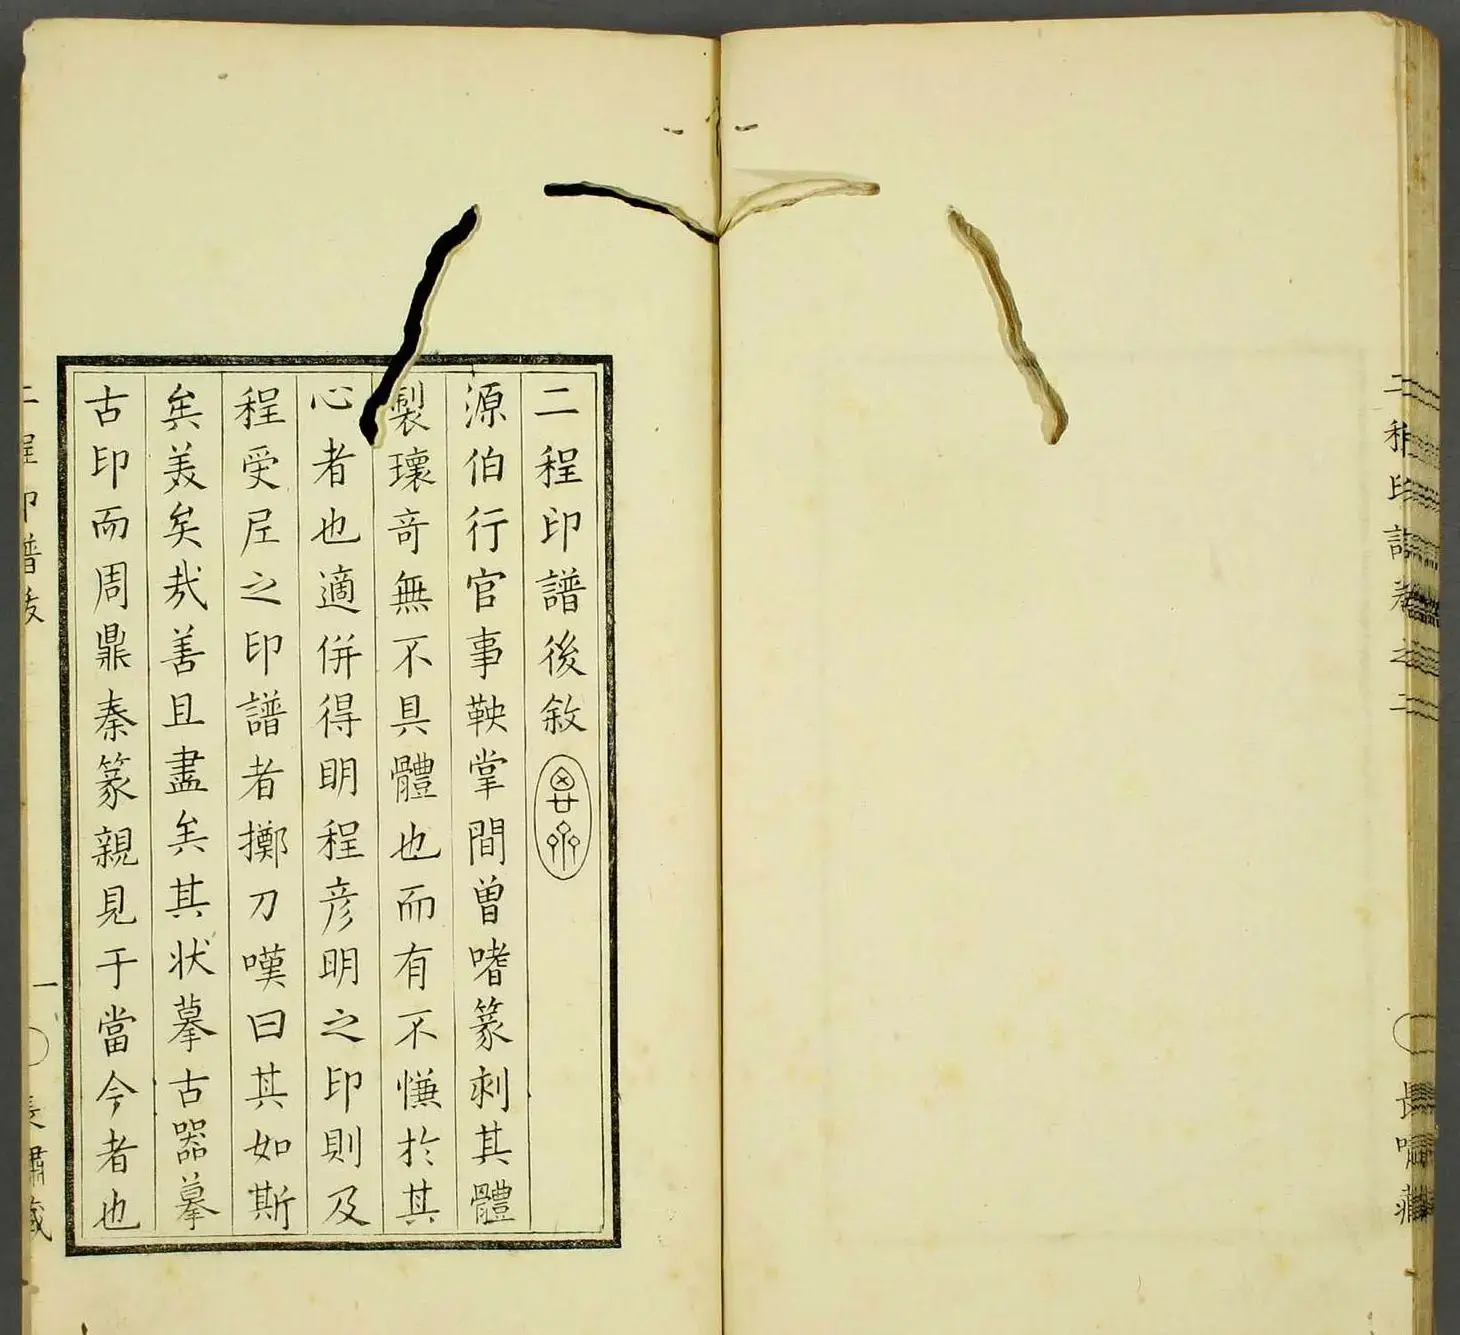 二程印譜後敘
源伯行官事鞅掌間曾嗜篆刻其體
製瓌奇無不具體也而有不慊於其
心者也適併得明程彦明之印則及
程受尼之印譜者擲刀嘆曰其如斯
矣美矣哉善且盡矣其状摹古器摹
古印而周鼎秦篆親見于當今者也
二程印譜後
一
長嘯蔵
二程印譜卷之二
長嘯蔵